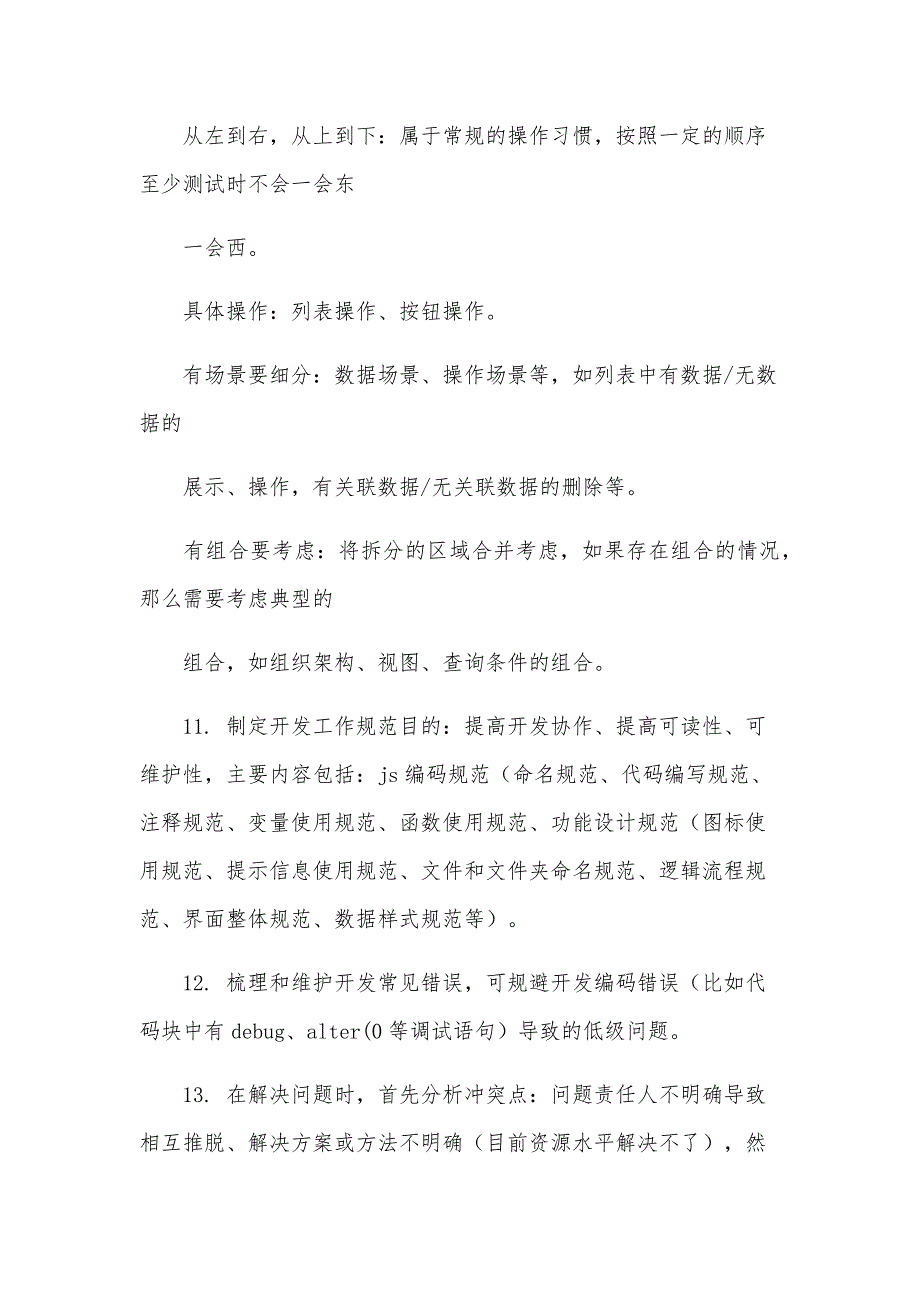 从左到右，从上到下：属于常规的操作习惯，按照一定的顺序
至少测试时不会一会东
一会西。
具体操作：列表操作、按钮操作。
有场景要细分：数据场景、操作场景等，如列表中有数据/无数
据的
展示、操作，有关联数据/无关联数据的删除等。
有组合要考虑：将拆分的区域合并考虑，如果存在组合的情况，
那么需要考虑典型的
组合，如组织架构、视图、查询条件的组合。
11. 制定开发工作规范目的：提高开发协作、提高可读性、可
维护性，主要内容包括：js 编码规范（命名规范、代码编写规范、
注释规范、变量使用规范、函数使用规范、功能设计规范（图标使
用规范、提示信息使用规范、文件和文件夹命名规范、逻辑流程规
范、界面整体规范、数据样式规范等）。
12. 梳理和维护开发常见错误，可规避开发编码错误（比如代
码块中有 debug、alter(0 等调试语句）导致的低级问题。
13. 在解决问题时，首先分析冲突点：问题责任人不明确导致
相互推脱、解决方案或方法不明确（目前资源水平解决不了），然